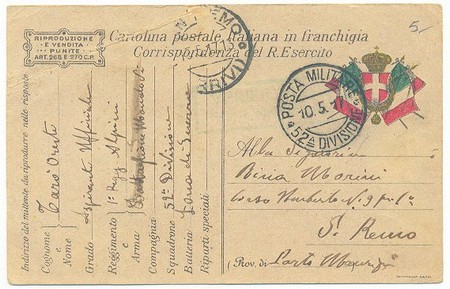 RIPRODUZIONE
E VENDITA
PUNITE
ART. 265 E 270 C.P.
Cartolina postale italiana in franchigia
Corrispondenza del R. Esercito
5-
ARRIVI
POSTA MILITARE
10.5.1
52ª DIVISIONE
Indirizzo del mittente da riprodurre nelle risposte
Cognome e Nome
Grado Aspirante Ufficiale
Reggimento e Arma 1° Regg Alpini
Compagnia
Squadrone 52ª Divisione
Batteria Zona di Guerra
Riparti speciali
Alla Signorina
Bina Morini
Corso Umberto N. 9
S. Remo
(Prov. di Porto Maurizio